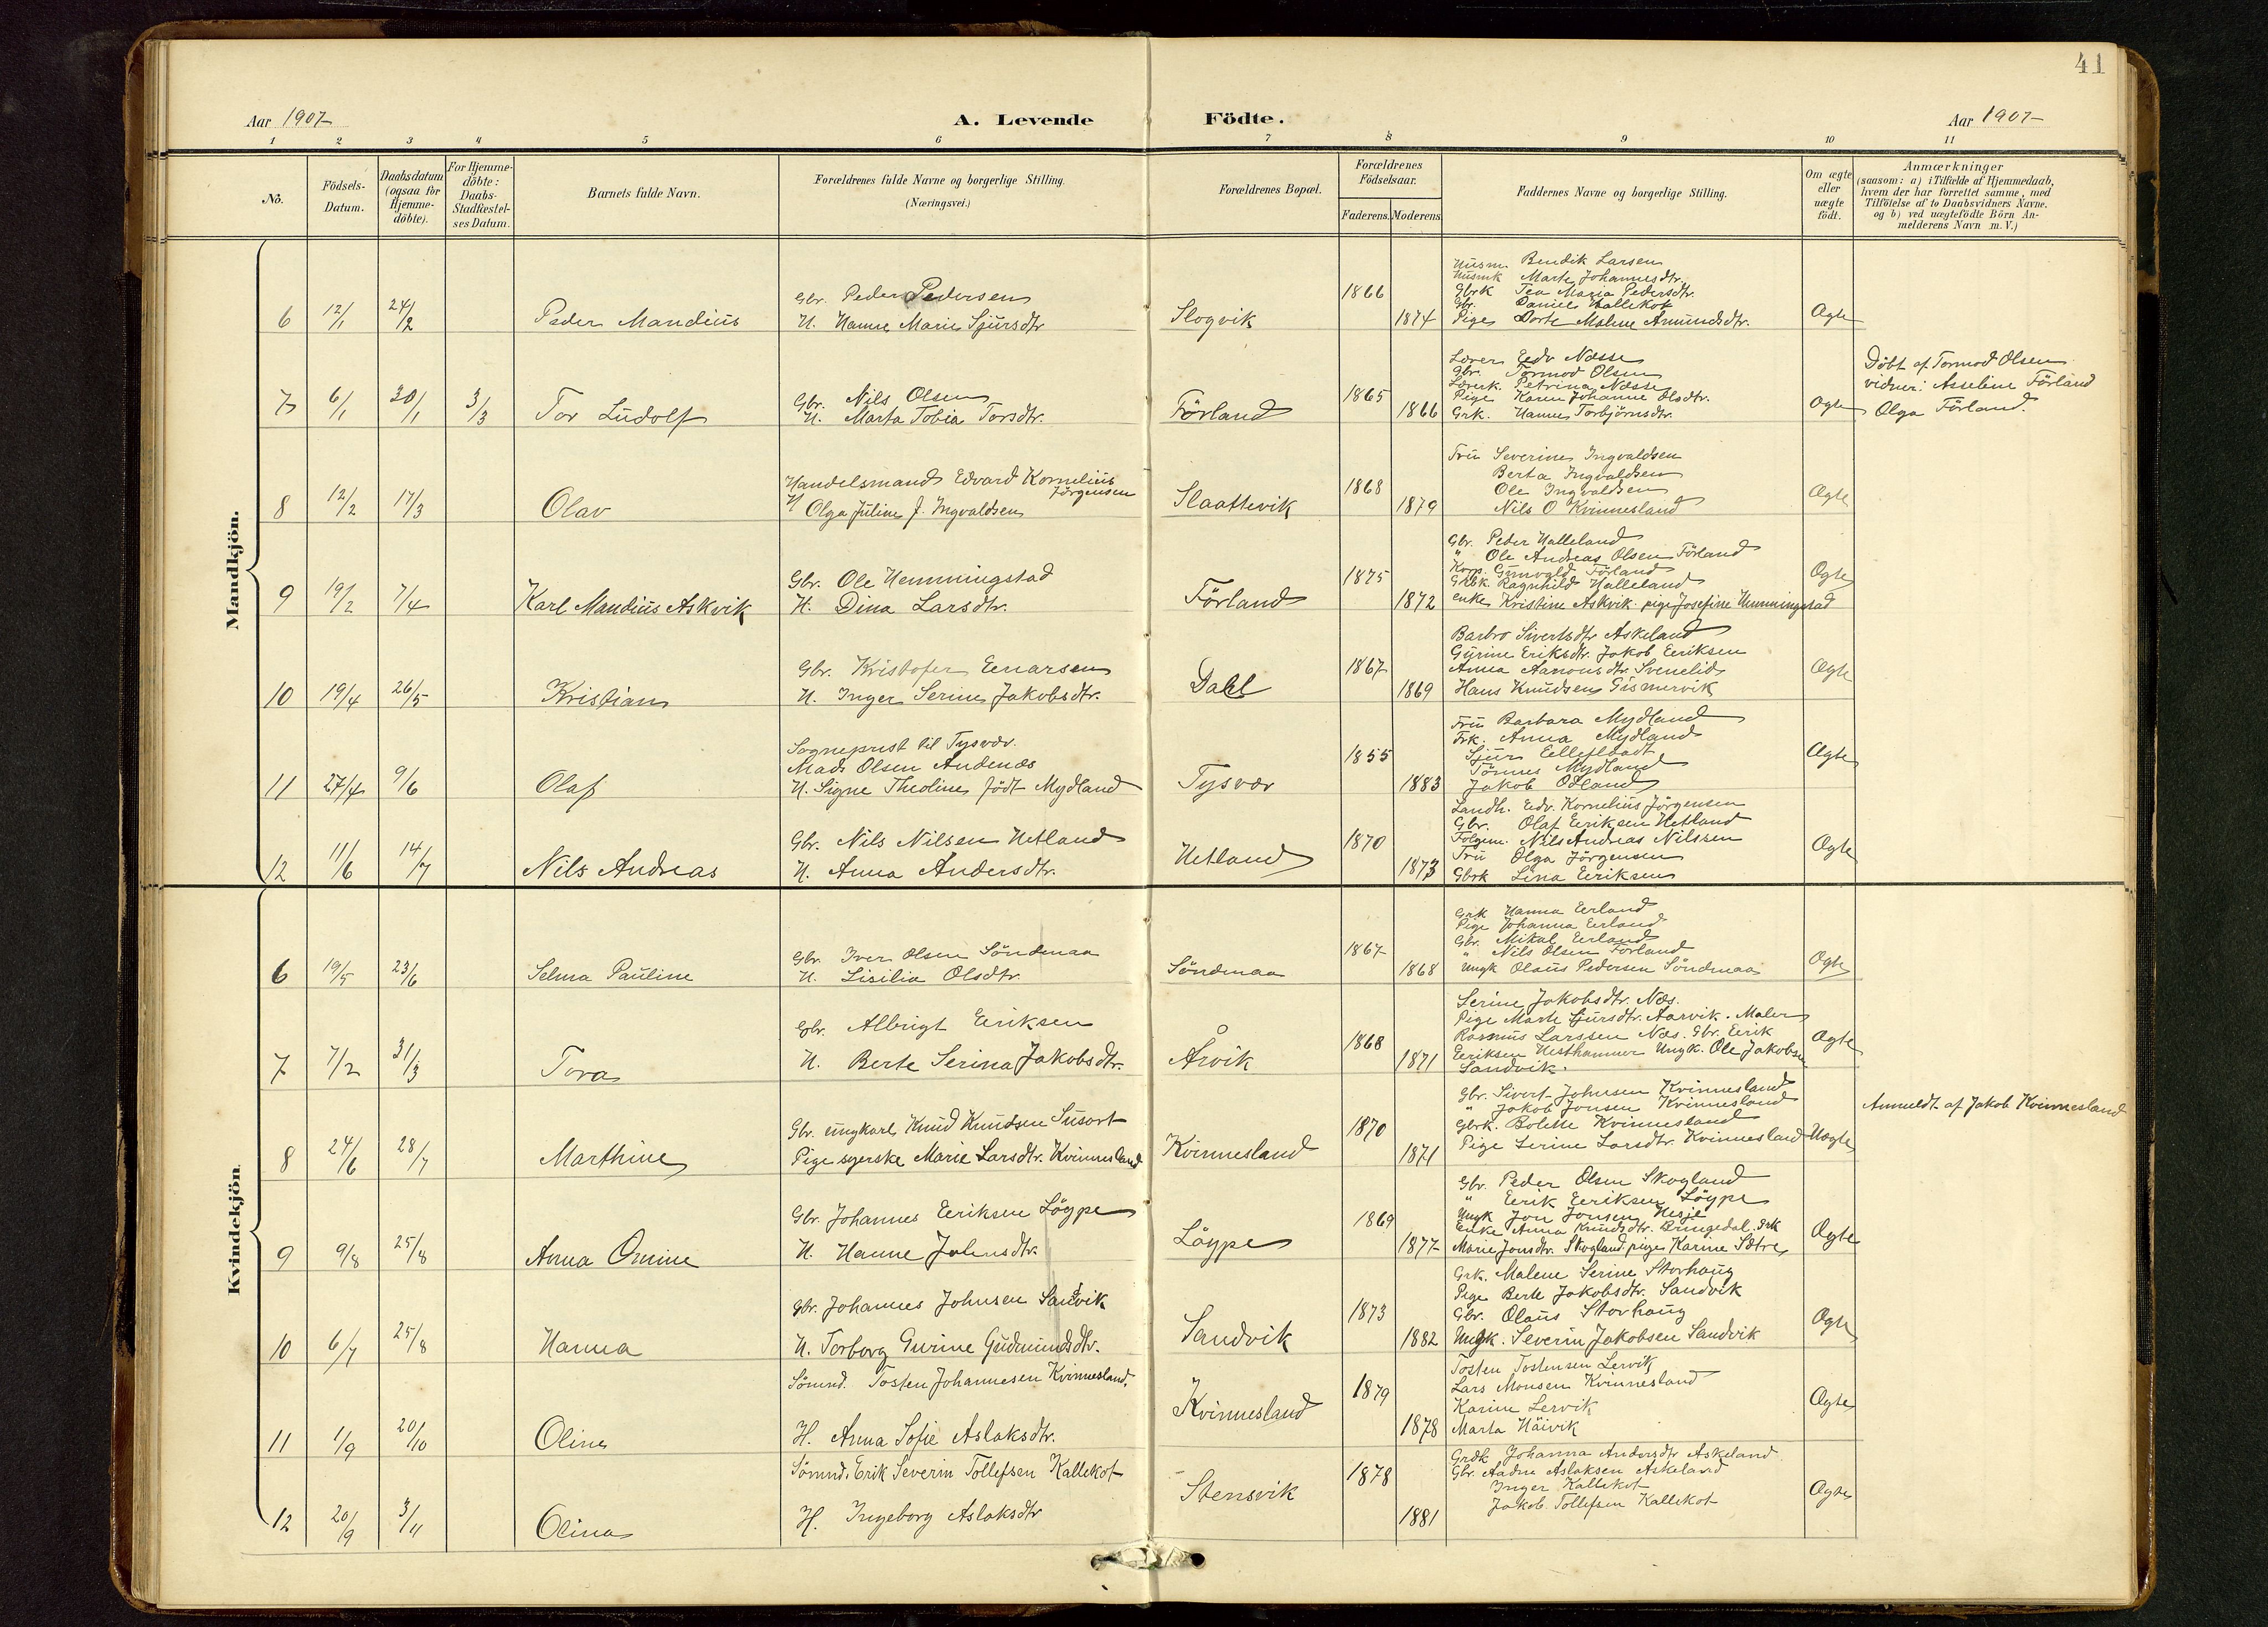 41
Aar 1907-
A. Levende Födte.
Aar 1907-
1 2 3 4 5 6 7 8 9 10 11
No.
Födsels-
Datum.
Daabsdatum
(ogsaa for
Hjemme-
döbte).
For Hjemme-
döbte:
Daabs-
Stadfæstel-
ses Datum.
Barnets fulde Navn.
Forældrenes fulde Navne og borgerlige Stilling.
(Næringsvei.)
Forældrenes Bopæl.
Forældrenes
Födselsaar.
Faderens. Moderens.
Faddernes Navne og borgerlige Stilling.
Om ægte
eller
uægte
födt.
Anmærkninger
(saasom: a) i Tilfælde af Hjemmedaab,
hvem der har forrettet samme, med
Tilföielse af to Daabsvidners Navne,
og b) ved uægtefödte Börn An-
melderens Navn m. V.)
Mandkjön.
6 12/1 24/2 Peder Mandius
Gbr. Peder Pedersen
H. Hanne Marie Sjursdtr
Slogvik
1866
1874
Husm. Bendik Larsen
Husmk Marte Johannesdtr.
Gbrk Tea Maria Pedersdtr.
Gbr. Daniel Kallekot
Pige Dorte Malene Amundsdtr.
Ægte
7 6/1 20/1 3/3 Tor Ludolf
Gbr. Nils Olsen
H. Marta Tobia Torsdtr.
Förland
1865
1866
Lærer Edv Næsse
Gbr. Tormod Olsen
Lærerk. Petrina Næsse
Pige Karen Johanne Olsdtr.
Grk. Hanne Torbjörnsdtr.
Ægte
Döbt af Tormod Olsen
vidner: Asseline Förland
Olga Förland.
8 12/2 17/3 Olav
Handelsmand Edvard Kornelius
Jörgensen
H Olga Juline J. Ingvaldsen
Slaattevik
1868
1879
Fru Severine Ingvaldsen
Berta Ingvaldsen
Ole Ingvaldsen
Nils O Kvinnesland
Ægte
9 19/2 7/4 Karl Mandius Askvik
Gbr. Ole Hemmingstad
H. Dina Larsdtr.
Förland
1875
1872
Gbr. Peder Halleland
" Ole Andreas Olsen Förland
Korp. Gunvald Förland
Gbrk. Ragnhild Halleland
enke Kristine Askvik. pige Josefine Hemmingstad
Ægte
10 19/4 26/5 Kristian
Gbr. Kristofer Eenarsen
H. Inger Serine Jakobsdtr.
Dahl
1867
1869
Barbro Sivertsdtr Askeland
Gurine Eriksdtr. Jakob Eeriksen
Anna Aanonsdtr. Svenelid
Hans Knudsen Gismervik
Ægte
11 27/4 9/6 Olaf
Sogneprest til Tysvær.
Mads Olsen Andenæs
H. Signe Theoline födt Mydland
Tysvær
1855
1883
Fru Barbara Mydland
Frk. Anna Mydland
Sjur
Tönnes Mydland
Jakob Odland
Ægte
12 11/6 14/7 Nils Andreas
Gbr. Nils Nilsen Hetland
H. Anna Andersdtr.
Hetland
1870
1873
Landh. Edv. Kornelius Jörgensen
Gbr. Olaf Eeriksen Hetland
Folgem. Nils Andreas Nilssen
Fru Olga Jörgensen
Gbrk Lina Eeriksen
Ægte
Kvindekjön.
6 19/5 23/6 Selma Pauline
Gbr. Iver Olsen Söndenaa
H. Lisilia Olsdtr.
Söndenaa
1867
1868
Grk Hanna Eerland
Pige Johanna Eerland
Gbr. Mikal Eerland
" Nils Olsen Förland
Ungk Olaus Pedersen Söndenaa
Ægte
7 7/2 31/3 Tora
Gbr. Albrigt Eeriksen
H. Berte Serina Jakobsdtr.
Årvik
1868
1871
Serine Jakobsdtr. Næs.
Pige Marte Sjursdtr. Aarvik. Maler
Rasmus Larssen Næs. Gbr. Eerik
Eeriksen Hesthammer Ungk. Ole Jakobsen
Sandvik.
Ægte
8 24/6 28/7 Marthine
Gbr. ungkarl Knud Knudsen Susort
Pige syerske Marie Larsdtr. Kvinnesland
Kvinnesland
1870
1871
Gbr. Sivert Johnsen Kvinnesland
" Jakob Jonsen Kvinnesland
Gbrk. Bolette Kvinnesland
Pige Serine Larsdtr. Kvinnesland
Uægte
Anmeldt af Jakob Kvinnesland
9 9/8 25/8 Anna Omine
Gbr. Johannes Eeriksen Löype
H. Hanne Johnsdtr.
Löype
1869
1877
Gbr. Peder Olsen Skogland
" Eerik Eeriksen Löype
Ungk Jon Jonsen Hesje
Enke Anna Knudsdtr. Bringedal. Grk
Marie Jonsdtr. Skogland. pige Karine Sætre
Ægte
10 6/7 25/8 Hanna
Gbr. Johannes Johnsen Sandvik
H. Torborg Gurine Gudmundsdtr.
Sandvik
1873
1882
Grk. Malene Serine Storhaug
Pige Berte Jakobsdtr. Sandvik
Gbr. Olaus Storhaug
Ungk. Severin Jakobsen Sandvik
Ægte
11 1/9 20/10 Oline
Sömnd. Tosten Johannesen Kvinnesland.
H. Anna Sofie Aslaksdtr.
Kvinnesland
1879
1878
Tosten Tostensen Lervik
Lars Monsen Kvinnesland
Karine Lervik
Marta Häivik
Ægte
12 20/9 3/11 Olina
Sömnd. Erik Severin Tollefsen Kallekot
H. Ingeborg Aslaksdtr
Stensvik
1878
1881
Grdk Johanna Andersdtr Askeland
Gbr. Aadne Aslaksen Askeland
Inger Kallekot
Jakob Tollefsen Kallekot
Ægte